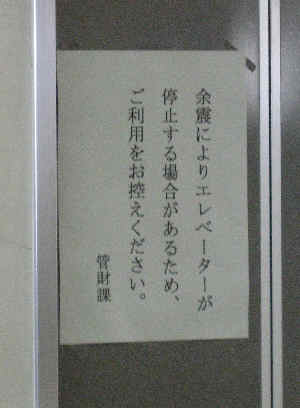 余震によりエレベーターが
停止する場合があるため、
ご利用をお控えください。
管財課